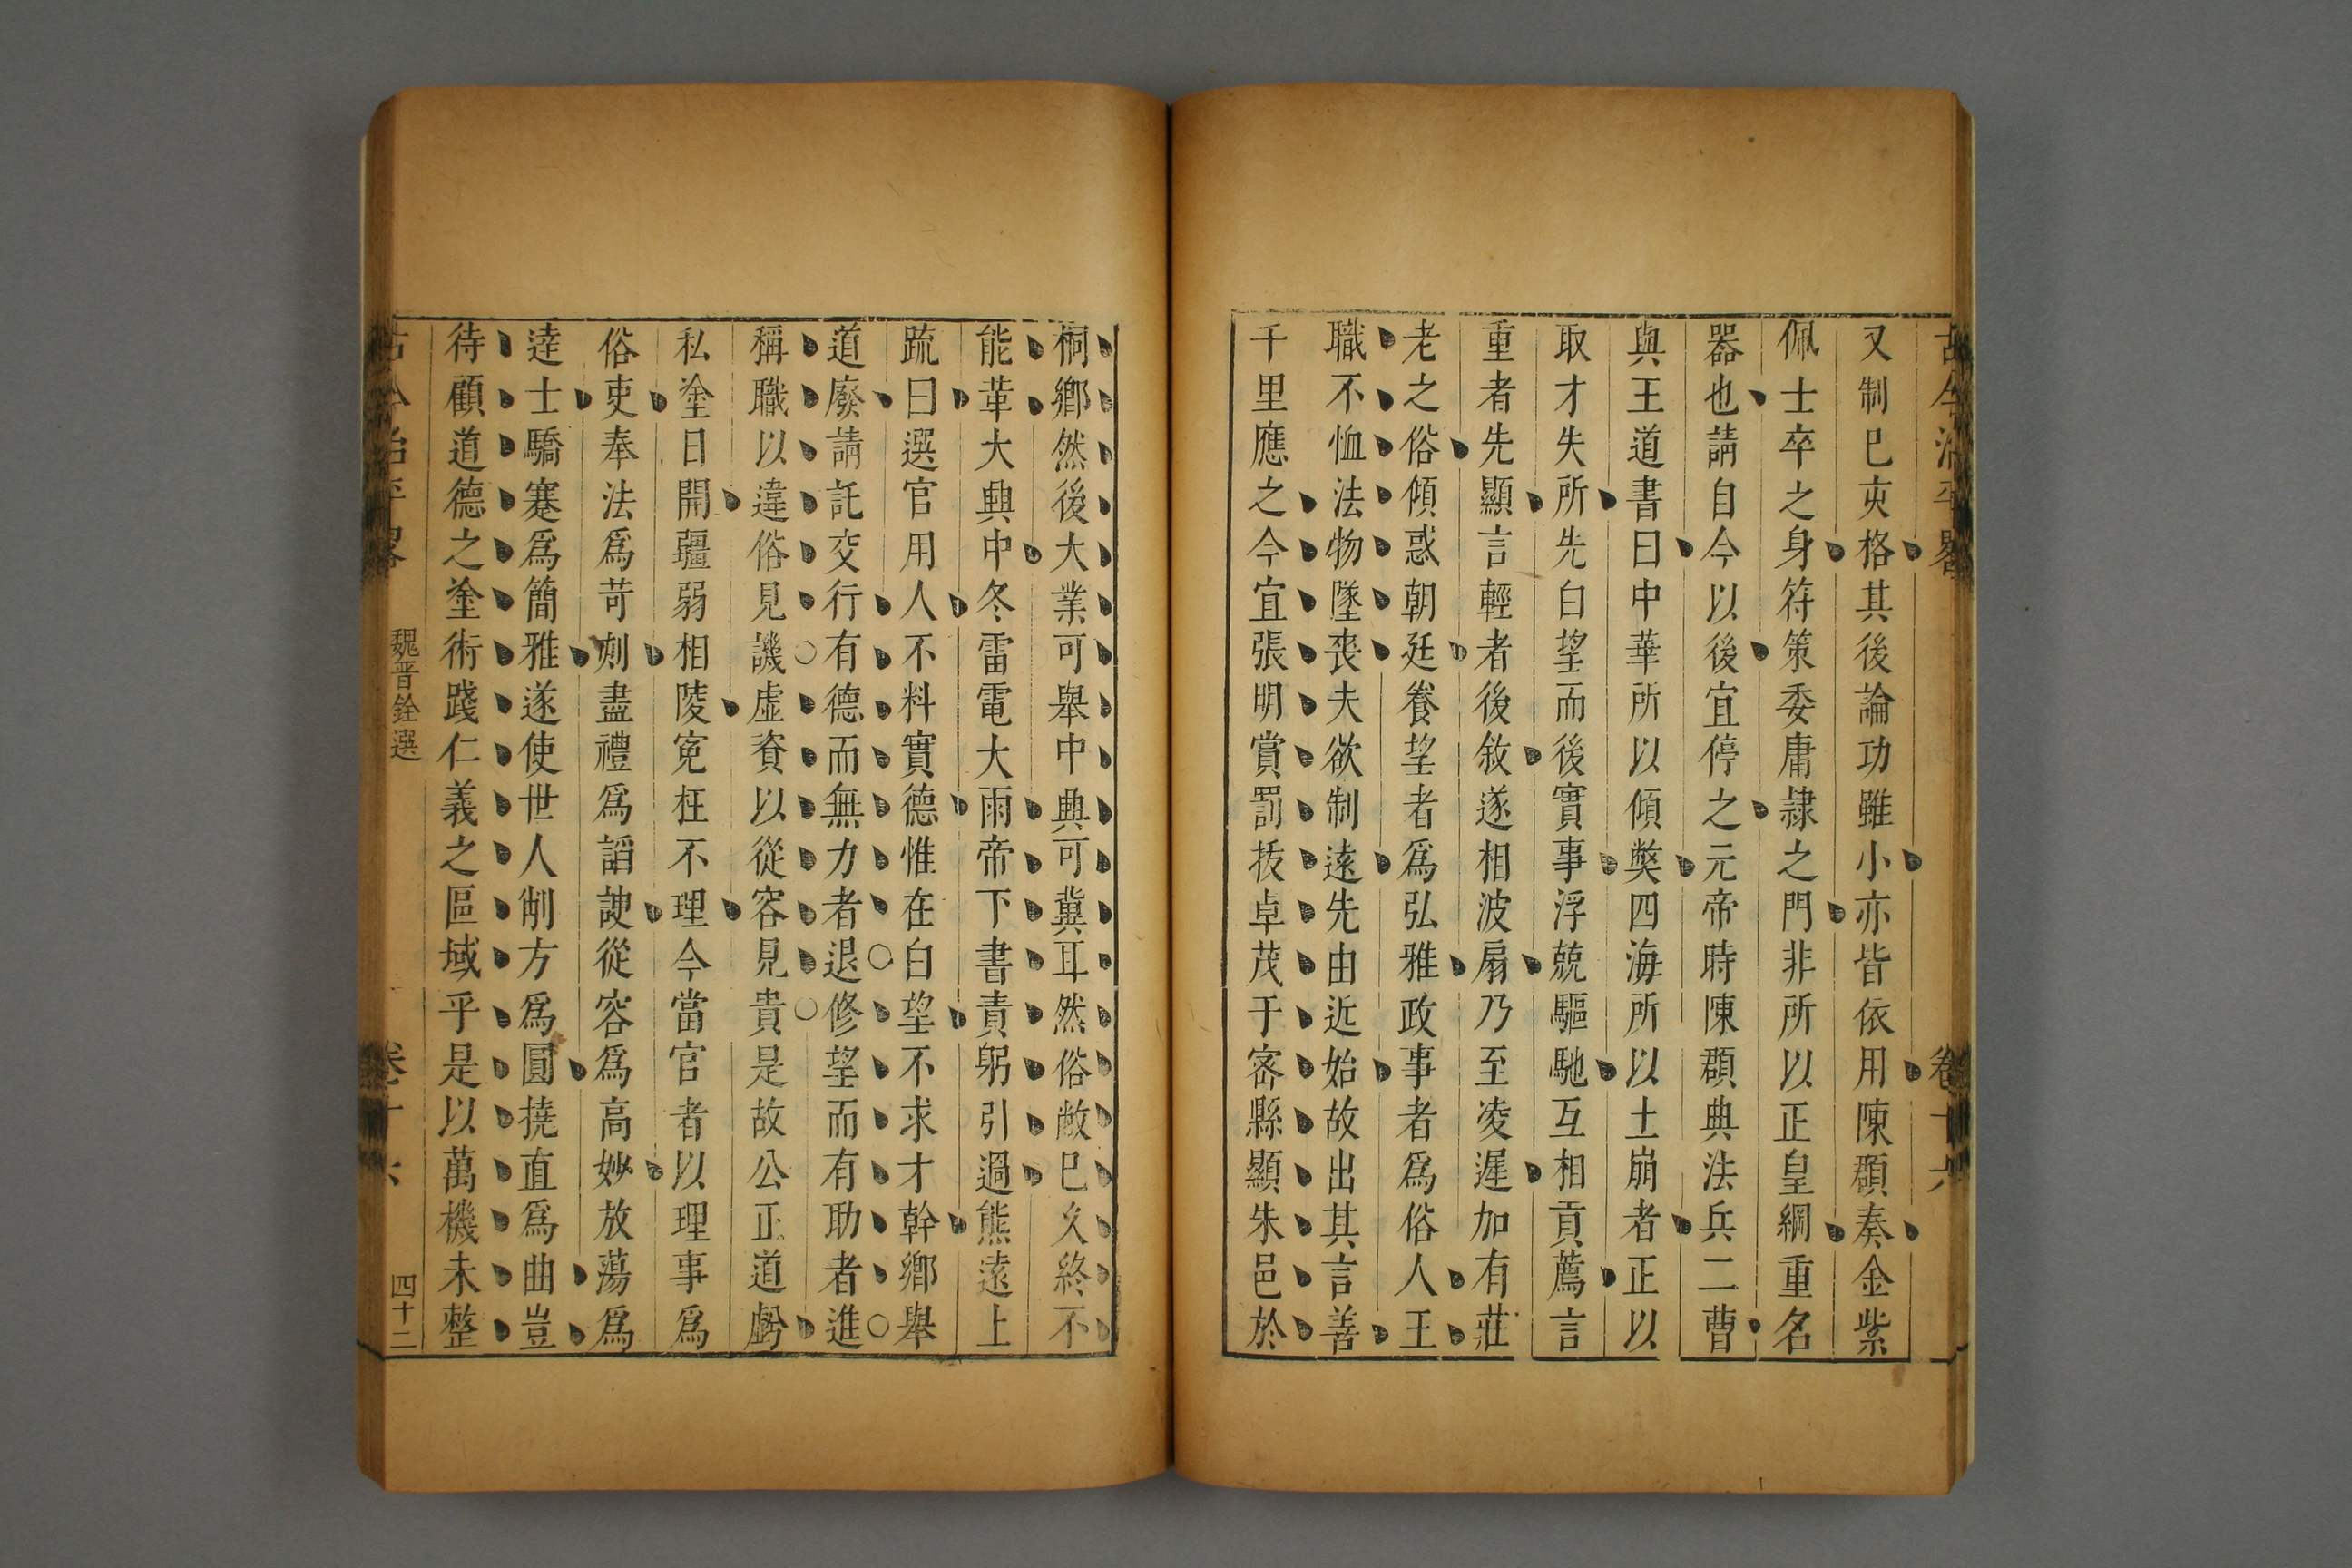 古今治平畧
卷十六
又制已㐫格其後論功雖小亦皆依用陳頵奏金紫
佩士卒之身符策委庸隷之門非所以正皇綱重名
器也請自今以後宜停之元帝時陳頵典法兵二曹
與王道書曰中華所以傾獘四海所以土崩者正以
取才失所先白望而後實事浮兢驅馳互相貢薦言
重者先顯言輕者後敘遂相波扇乃至凌遲加有莊
老之俗傾惑朝廷養望者爲弘雅政事者爲俗人王
職不恤法物墜喪夫欲制遠先由近始故出其言善
千里應之今宜張明賞罰拔卓茂于密縣顯朱邑於
桐鄉然後大業可舉中興可冀耳然俗敝已久終不
能革大興中冬雷電大雨帝下書責躬引過熊遠上
疏曰選官用人不料實德惟在白望不求才幹鄉舉
道廢請託交行有德而無力者退修望而有助者進
稱職以違俗見譏虛資以從容見貴是故公正道虧
私塗日開疆弱相陵寃枉不理今當官者以理事爲
俗吏奉法爲苛刻盡禮爲諂諛從容爲高妙放蕩爲
達士驕蹇爲簡雅遂使世人削方爲圓撓直爲曲豈
待顧道德之塗術踐仁義之區域乎是以萬機未整
古今治平畧
魏晋銓選
卷十六
四十二